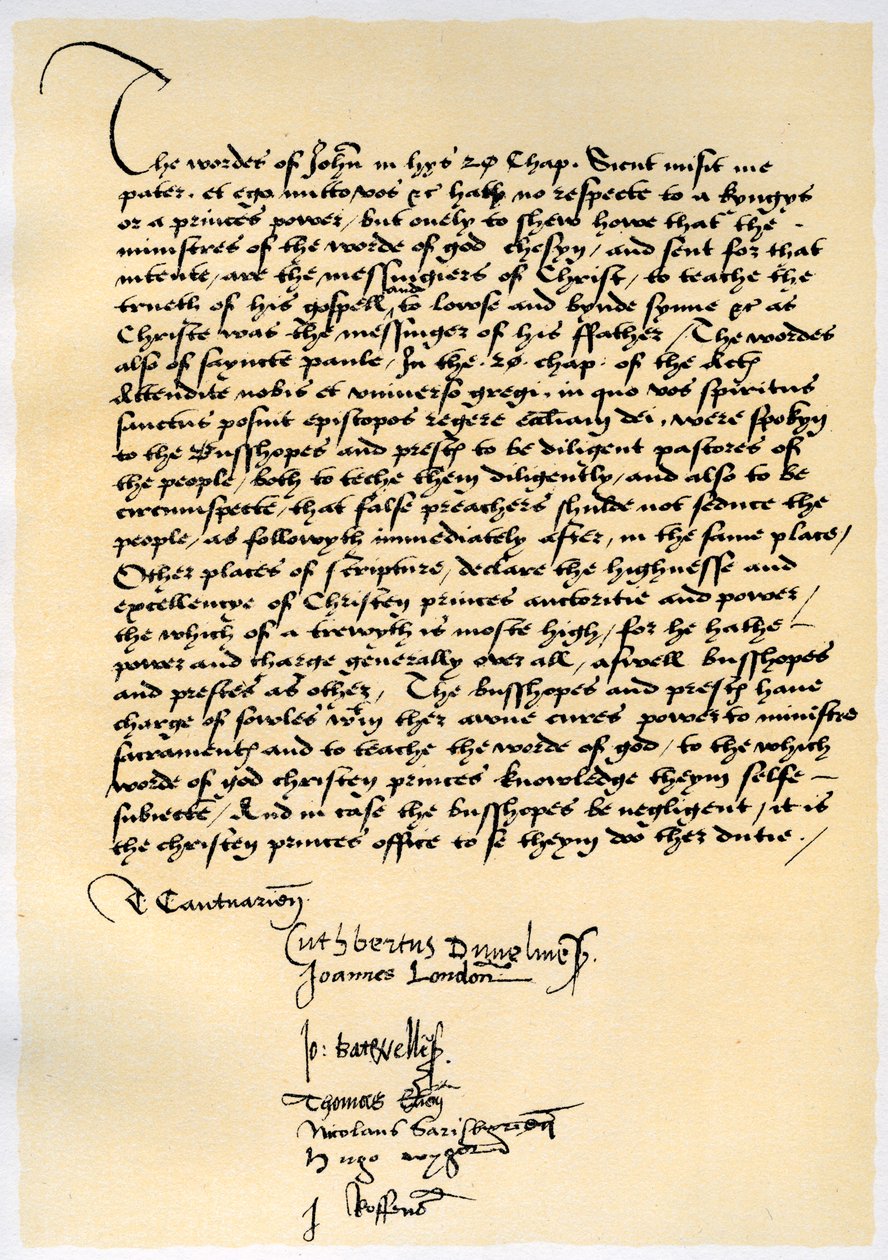 The wordes of John in hys 20 Chap. Sicut misit me
pater. et ego mitto vos &c hath no respecte to a kyngys
or a princes power, but onely to shew howe that the
ministres of the worde of god chosyn, and sent for that
intente, are the messyngiers of Christ, to teache the
trueth of his gospell, and to lowse and bynde synne &c as
Christe was the messinger of his ffather, The wordes
also of sayncte paule, In the .20. chap. of the Act
Attendite vobis et universo gregi, in quo vos spiritus
sanctus posuit episcopos regere eccliam dei, were spokyn
to the Busshopes and prest to be diligent pastores of
the people, both to teche them diligently, and also to be
circumspecte, that false preachers shulde not seduce the
people, as followyth immediately after, in the same place,
Other places of scripture, declare the highnesse and
excellencye of Christen princes auctoritie and power,
the which of a trewyth is moste high, for he hathe
power and charge generally over all, aswell busshopes
and prestes as other, The busshopes and prest have
charge of sowles wtin ther awne cures power to ministre
sacrament and to teache the worde of god, to the which
worde of god christen princes knowledge theym selfe
subiecte, And in case the busshopes be negligent, it is
the christen princes office to se theym doo ther dutie.
T. Cantuarien
Cuthbertus Dunelmes.
Joannes London
Jo: batwellis.
Thomas Elien
Nicolaus Sarisburien
Hugo wygorn
J Roffens